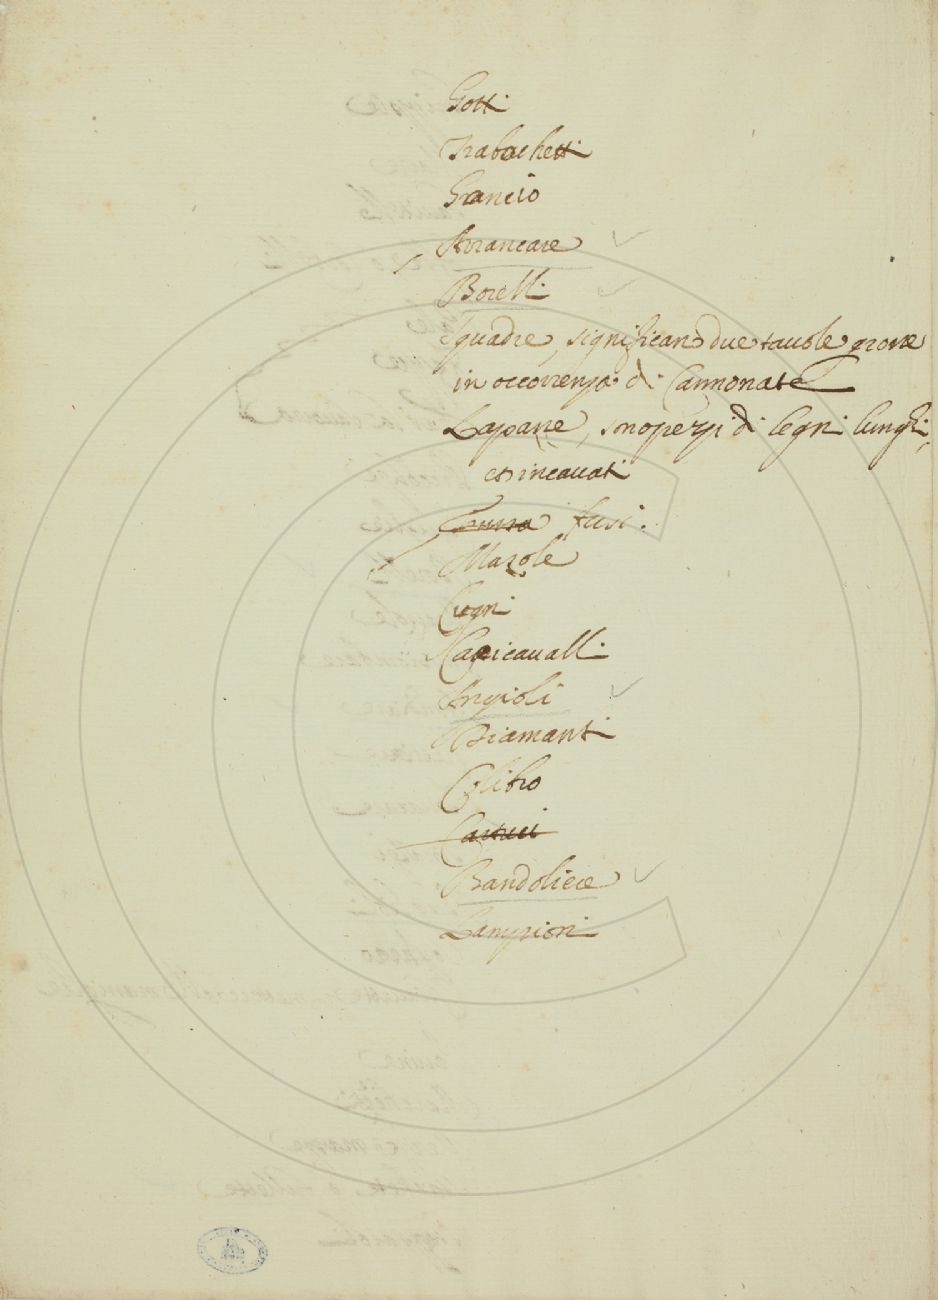 Gotti
Trabachetti
Grancio
Avancare
Borelli
Squadre, significan due tavole grosse
in occorrenza di Cannonate
Lapazze, sno pezzi di legni lunghi,
et incavati
fusi.
Mazole
Cugni
Capicavalli
Angioli
Diamanti
Colibro
Cartuci
Bandoliere
Lampioni